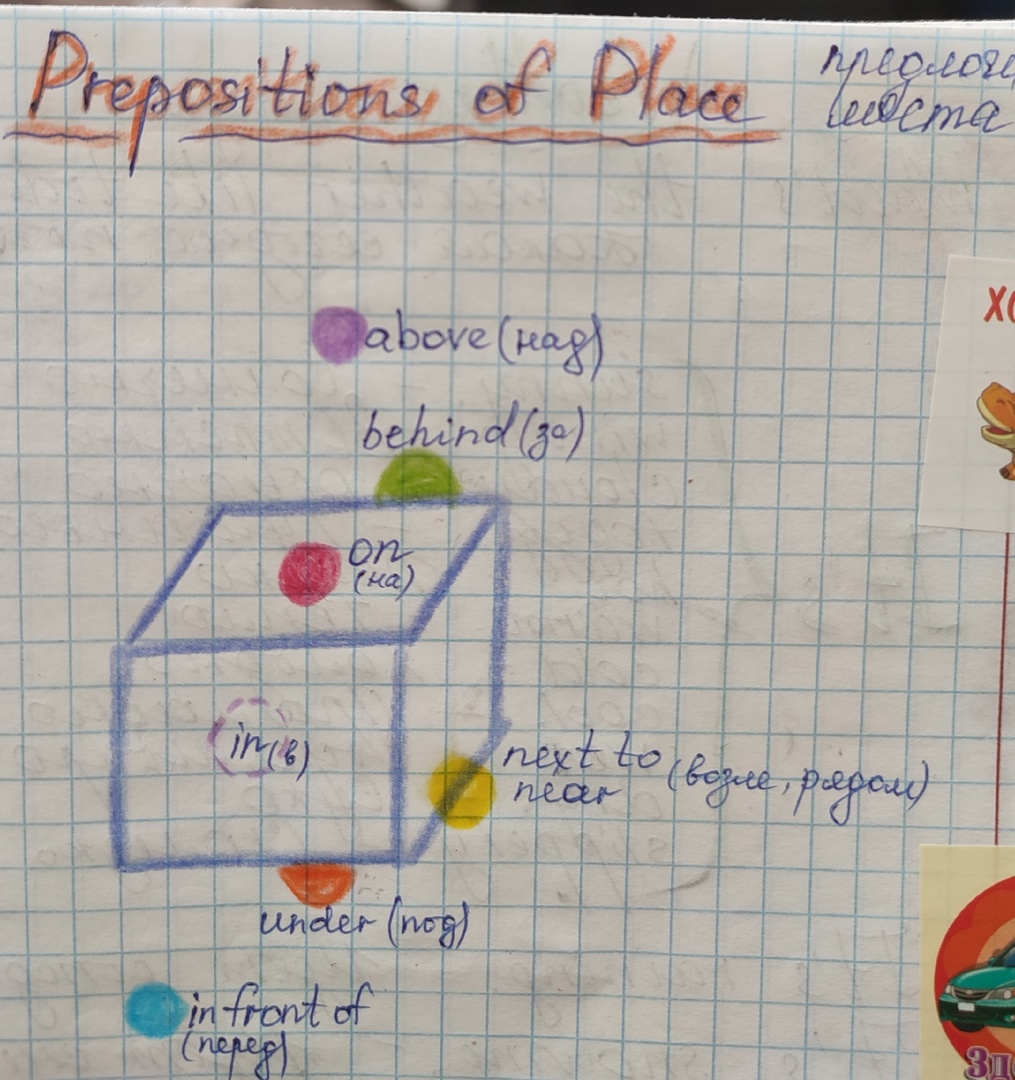 Prepositions of Place
места
above (над)
behind (за)
on
(на)
in (в)
next to
near (возле, рядом)
under (под)
in front of
(перед)